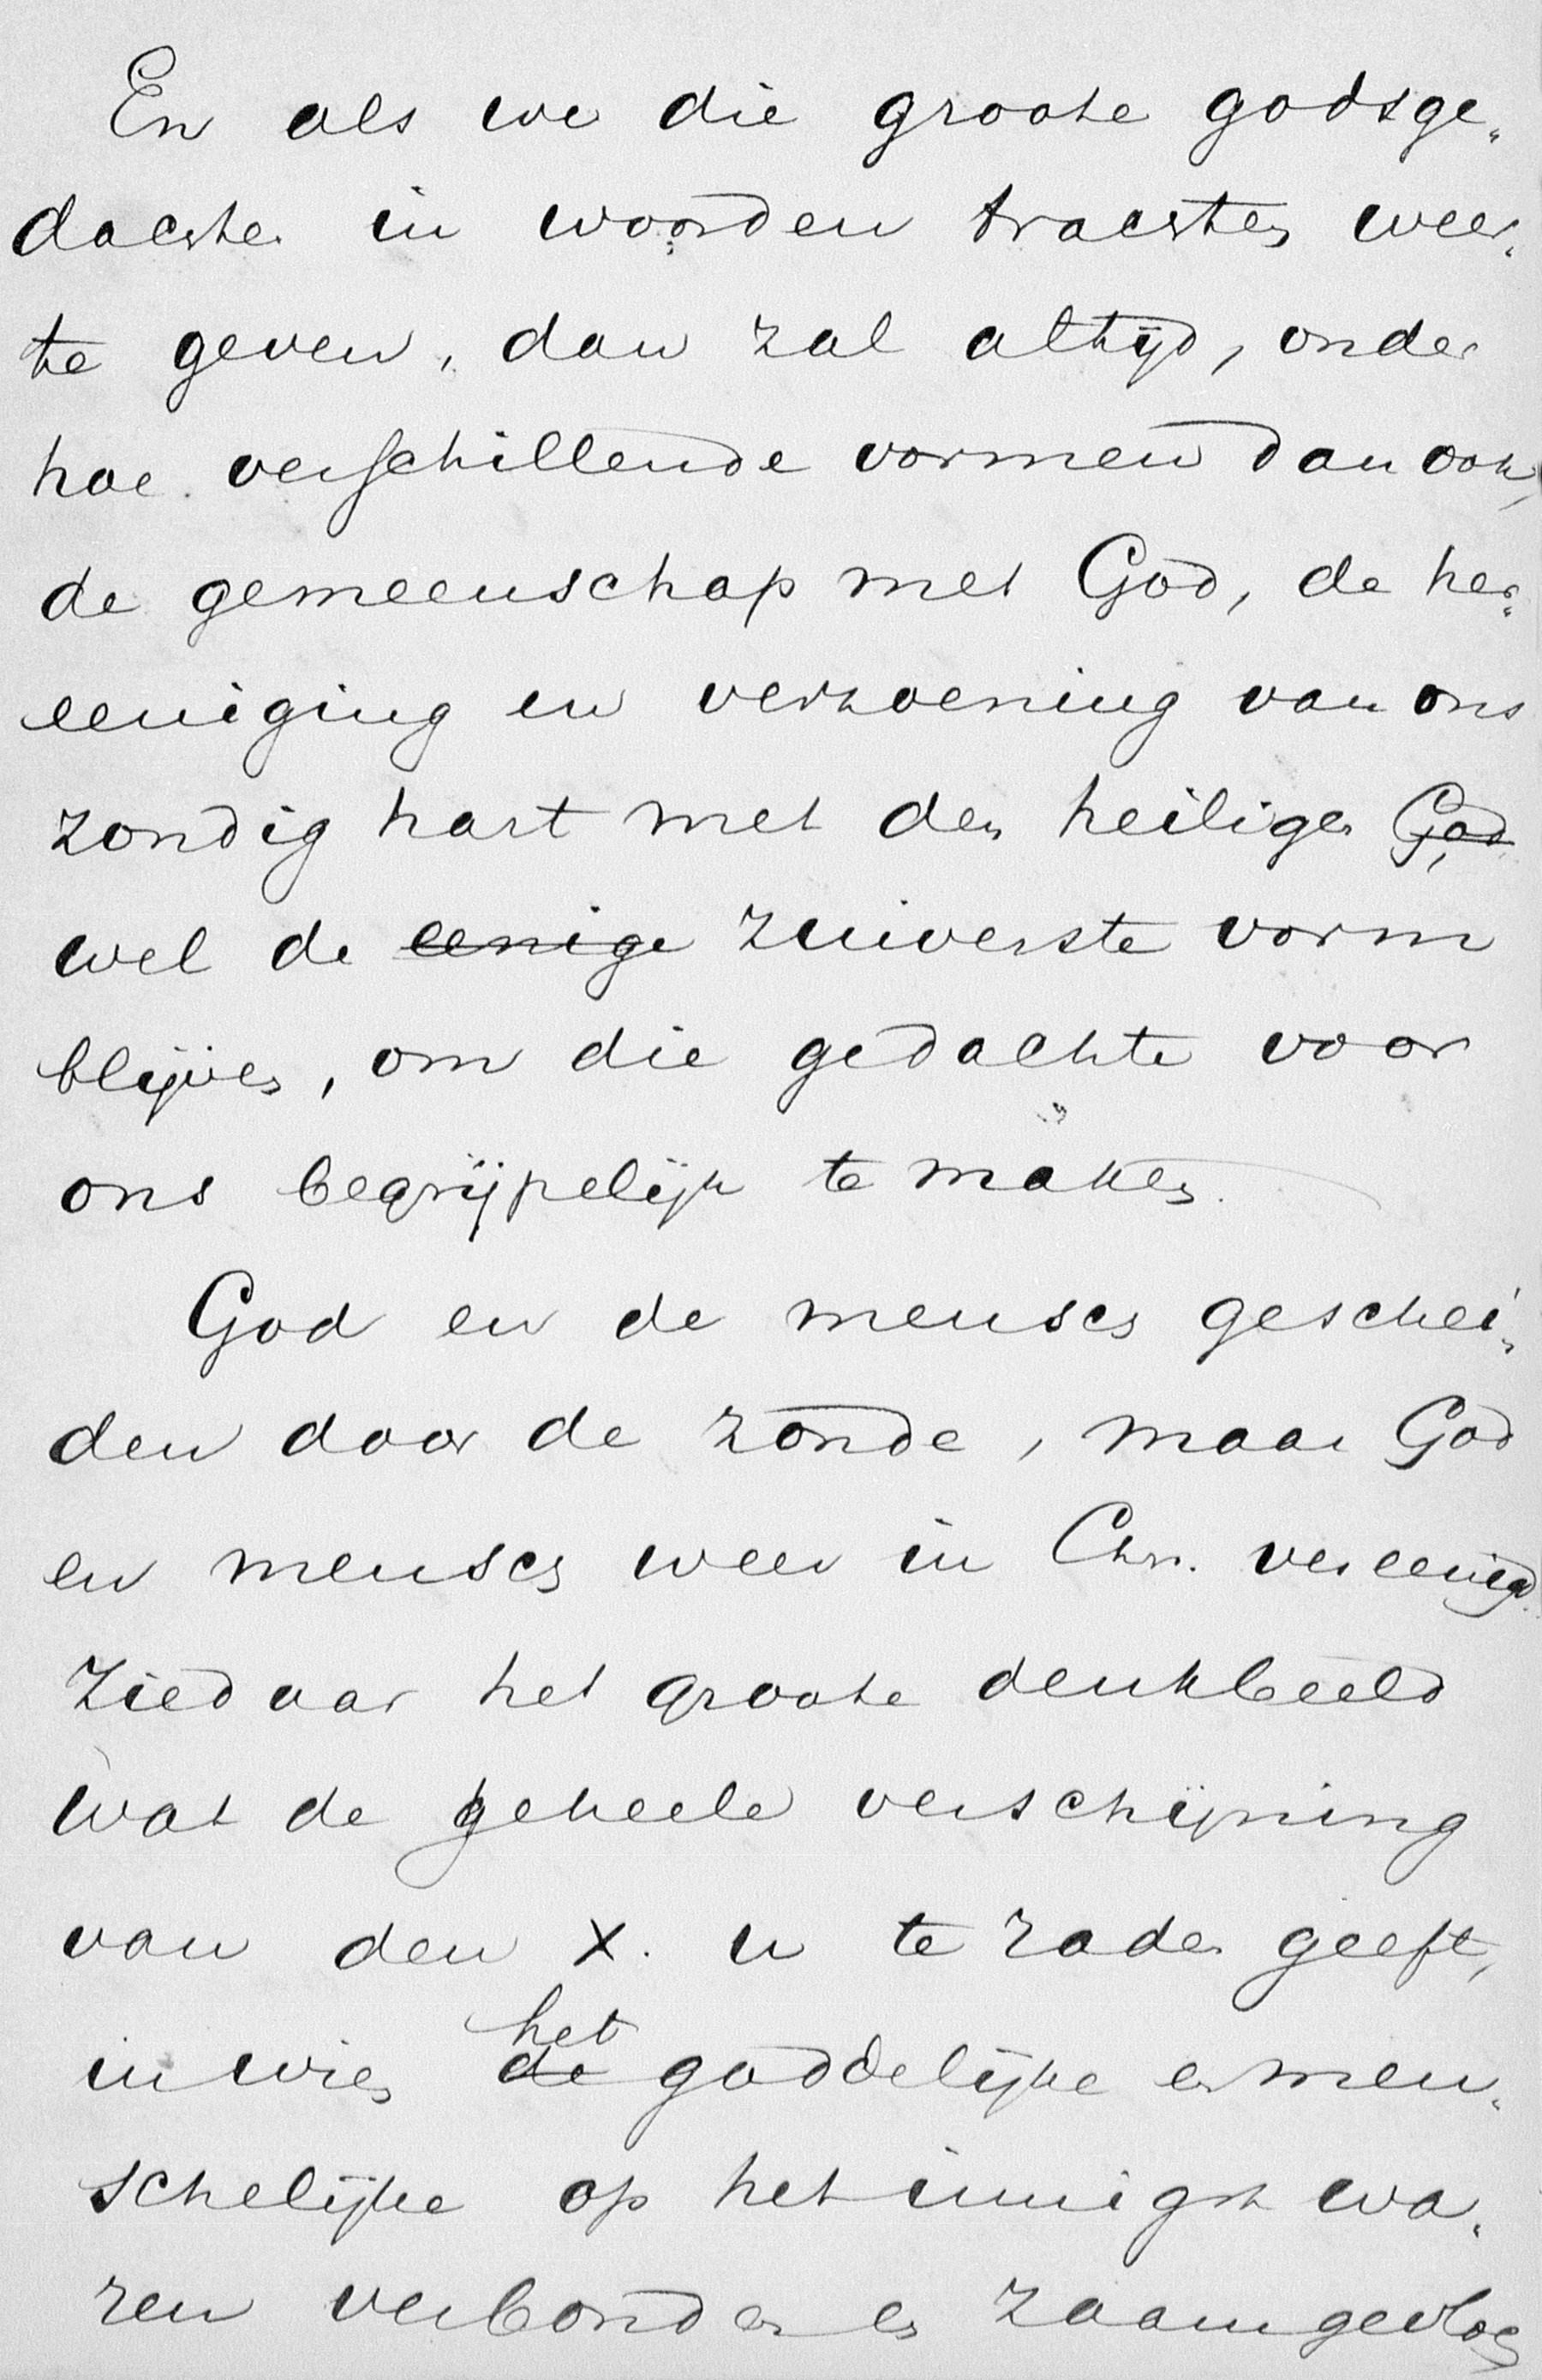 En als we die groote godsge„
dachte in woorden trachten weer„
te geven, dan zal altijd, onder
hoe verschillende vormen dan ook,
de gemeenschap met God, de her„
eeniging en verzoening van ons
zondig hart met den heiligen God,
wel de eenige zuiverste vorm
blijven, om die gedachte voor
ons begrijpelijk te maken.
God en de mensch geschei„
den door de zonde, maar God
en mensch weer in Chr. vereenigd.
Ziedaar het groote denkbeeld
wat de geheele verschijning
van den X. u te raden geeft,
in wien de het goddelijke en men„
schelijke op het innigst wa„
ren verbonden en zaamgevloe